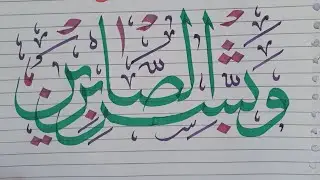 وَبَشِّرِ الصَّابِرِينَ